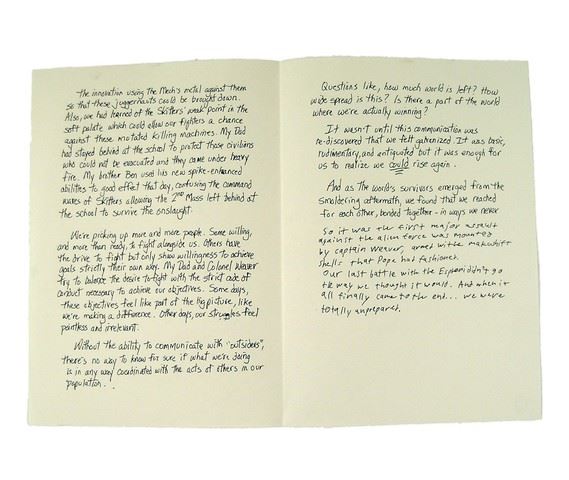 the innovation using the Mech's metal against them
so that these juggernauts could be brought down.
Also, we had learned of the Skitters' weak point in the
soft palate which could allow our fighters a chance
against those mutated killing machines. My Dad
had stayed behind at the school to protect those civilians
who could not be evacuated and they came under heavy
fire. My brother Ben used his new spike-enhanced
abilities to good effect that day, confusing the command
waves of Skitters allowing the 2nd Mass left behind at
the school to survive the onslaught.
We're picking up more and more people. Some willing,
and more than ready, to fight alongside us. Others have
the drive to fight but only show willingness to achieve
goals strictly their own way. My Dad and Colonel Weaver
try to balance the desire to fight with the strict code of
conduct necessary to achieve our objectives. Some days,
these objectives feel like part of the big picture, like
we're making a difference. Other days, our struggles feel
pointless and irrelevant.
Without the ability to communicate with "outsiders",
there's no way to know for sure if what we're doing
is in any way coordinated with the acts of others in our
population...
Questions like, how much world is left? How
wide spread is this? Is there a part of the world
where we're actually winning?
It wasn't until this communication was
re-discovered that we felt galvanized. It was basic,
rudimentary, and antiquated but it was enough for
us to realize we could rise again.
And as the world's survivors emerged from the
smoldering aftermath, we found that we reached
for each other, bonded together - in ways we never
So it was the first major assault
against the alien force was mounted
by captain Weaver, armed with makeshift
shells that Pope had fashioned.
Our last battle with the Espheni didn't go
the way we thought it would. And when it
all finally came to the end... we were
totally unprepared.